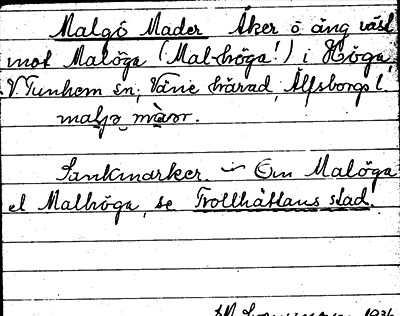 Malgö Mader Åker o äng väst
mot Malöga (Mal-höga!) i Höga,
V. Tunhem sn, Väne härad, Älfsborgs l.
maljø màər.
Sankmarker. – Om Malöga
el Malhöga, se Trollhättans stad.
1936